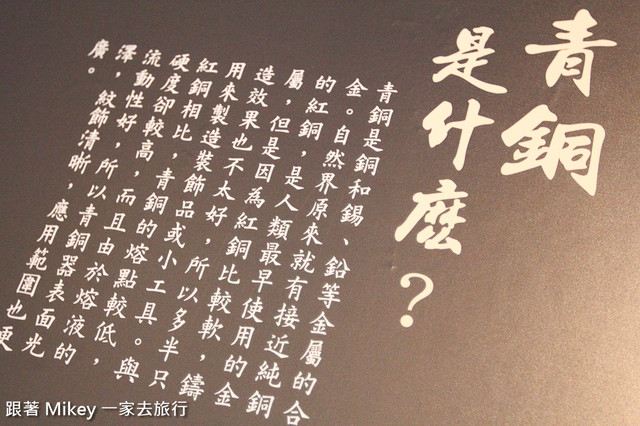 青銅
是什麼？
青銅是銅和錫、鉛等金屬的合
金。自然界原來就有接近純銅
的紅銅，是人類最早使用的金
屬，但是因為紅銅比較軟，鑄
造效果也不太好，所以多半只
用來製造裝飾品或小工具。與
紅銅相比，青銅的熔點較低，
硬度卻較高，而且由於熔液的
流動性好，所以青銅器表面光
澤，紋飾清晰，應用範圍也更
廣。
跟著 Mikey 一家去旅行